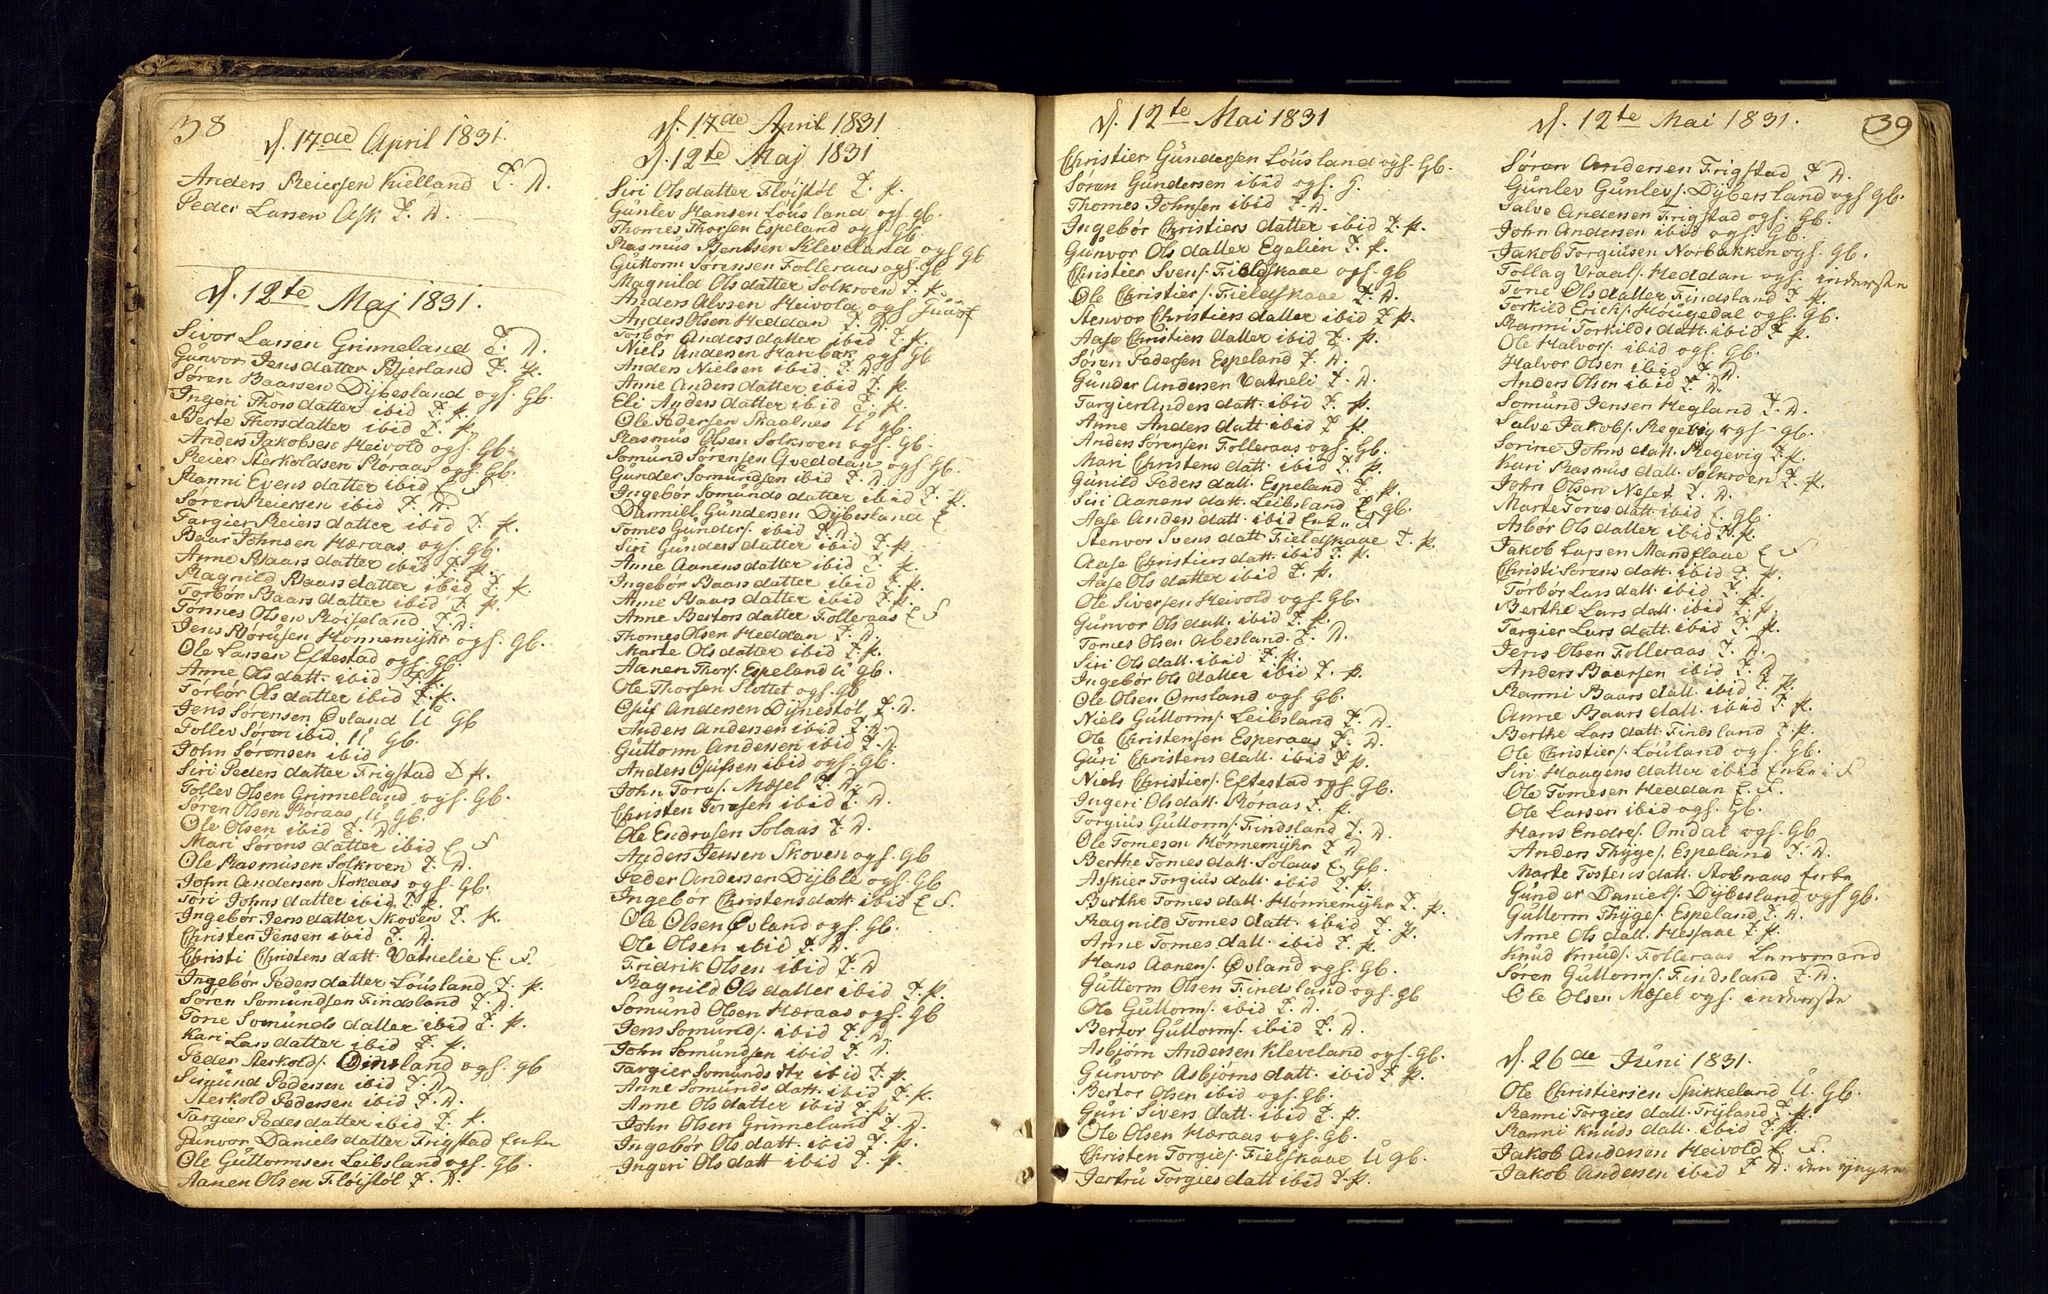 38
d. 17de April 1831.
Anders Reiersen Kielland T. D.
Peder Larsen Ask T. D.
d. 12te Maj 1831.
Sivor Larsen Grimeland T. D.
Günvor Jens datter Bjerland T. P.
Søren Baarsen Dÿbesland ogs. Gb.
Ingeri Thors datter ibid T. P.
Berte Thorsdatter ibid T. P.
Anders Jakobsen Heivold ogs. Gb.
Reier Sterkoldsen Røraas ogs. Gb.
Ranni Evens datter ibid E S
Søren Reiersen ibid T. D.
Targier Reiers datter ibid T. P.
Baar Johnsen Hæraas ogs. Gb.
Anne Baars datter ibid T. P.
Ragnild Baars datter ibid T. P.
Torbør Baars datter ibid T. P.
Tønnes Olsen Røiseland T. D.
Jens Børüsen Hønnemÿhr ogs. Gb.
Ole Larsen Eftestad ogs. Gb.
Anne Ols datt. ibid T. P.
Torbør Ols datter ibid T. P.
Jens Sørensen Øvland U Gb
Tollev Søren ibid U Gb.
John Sørensen ibid
Siri Peders datter Frigstad T P.
Tollev Olsen Grimeland ogs. Gb.
Søren Olsen Røraas U Gb.
Ole Olsen ibid T. D.
Mari Sørens datter ibid E S
Ole Rasmusen Solkroen T. D.
John Andersen Stokaas ogs. Gb.
Siri Johns datter ibid T. P.
Ingebør Jens datter Skoven T. P.
Christen Jensen ibid T. D.
Christi Christens datt. Vatnelie E. S.
Ingebør Peders datter Loüsland T. P.
Søren Somündsen Findsland T. D.
Tone Somünds datter ibid T. P.
Kari Lars datter ibid T. P.
Peder Sterkolds. Omsland ogs. gb
Simünd Pedersen ibid T. D.
Sterkold Pedersen ibid T. D.
Targier Pedes datter ibid T. P.
Günvor Daniels datter Frigstad Enke
Ole Güttormsen Leibsland ogs. Gb.
Aanen Olsen Fløistøl T. D.
d. 17de April 1831
d. 12te Maj 1831
Siri Ols datter Fløistøl T. P.
Günlev Hansen Loüsland ogs. gb.
Thomes Thorsen Espeland ogs. Gb.
Rasmus Bentsen Kleveland ogs. Gb
Güttorm Sørensen Folleraas ogs. Gb
Magnild Ols datter Solkroen T. P.
Anders Alvsen Heivold ogs
Anders Olsen Heddan T. D.
Torbør Anders datter ibid T. P.
Niels Andersen Hanbak ogs. Gb
Anden Nielsen ibid T. D.
Anne Anders datter ibid T. P.
Eli Anders datter ibid T. P.
Ole Pedersen Skaalnes U gb.
Rasmus Olsen Solkroen ogs. Gb.
Somünd Sørensen Qveddan ogs. Gb.
Günder Somündsen ibid T. D.
Ingebør Somünds datter ibid T. P.
Danniel Gündersen Dÿbesland E
Tomes Günders. ibid T. D.
Siri Günders datter ibid T. P.
Anne Aanens datter ibid T. P.
Ingebør Baars datter ibid T. P.
Anne Baars datter ibid T. P.
Anne Bertors datter Folleraas E S
Thomes Olsen Heddan T. D.
Marte Ols datter ibid T. P.
Aanen Thors. Espeland U gb.
Ole Thorsen Slottet ogs. Gb
Ojuf Andersen Dÿnestøl T. D.
Anders Andersen ibid T. D.
Güttorm Andersen ibid T. D.
Anders Ojufsen ibid ogs. Gb.
John Tores. Mosel T. D.
Christen Toresen ibid T. D.
Ole Endresen Solaas T. D.
Anders Jensen Skoven ogs. Gb
Peder Andersen Dÿble ogs. Gb
Ingebør Christens datt ibid E S.
Ole Olsen Øvland ogs. Gb.
Ole Olsen ibid T. D.
Fridrik Olsen ibid T. D
Ragnild Ols datter ibid T. P.
Somünd Olsen Hæraas ogs. Gb
Jens Somünds. ibid T. D.
John Somündsen ibid T. D.
Targier Somünds dtr ibid T. P.
Anne Somünds datt. ibid T. P.
Anne Ols datter ibid T. P.
John Olsen Grimeland T. D.
Ingebør Ols datt. ibid T. P.
Ingeri Ols datt ibid T. P.
d. 12te Mai 1831
Christier Gündersen Loüsland ogs. Gb.
Søren Gündersen ibid ogs. G.
Thomes Johnsen ibid T. D.
Ingebør Christiers datter ibid T. P.
Günvor Ols datter Egelien T. P.
Christier Svens. Fieldskaae ogs. gb
Ole Christiers. Fieldskaae T. D.
Stenvor Christiers datter ibid T. P.
Aase Christiers datter ibid T. P.
Søren Pedersen Espeland T. D.
Günder Andersen Vatneli T. D.
Targier Anders datt. ibid T. P.
Anne Anders datt. ibid T. P.
Anders Sørensen Folleraas ogs. Gb.
Mari Christens datt. ibid T. P.
Günild Peders datt. Espeland T. P.
Siri Aanens datt. Leibsland E Gb.
Aase Anders datt. ibid Enke S
Stenvor Svens datt. Fieldskaae T. P.
Aase Christiers datt. ibid T. P.
Aase Ols datter ibid T. P.
Ole Siversen Heivold ogs. Gb.
Günvor Ols datt. ibid T. P.
Tomes Olsen Abesland T. D.
Siri Ols datt. ibid T. P.
Ingebør Ols datter ibid T. P.
Ole Olsen Omsland ogs. Gb.
Niels Güttorms. Leibsland T. D.
Ole Christensen Esperaas T. D.
Guri Christens datt. ibid T. P.
Niels Christiers. Eftestad ogs. Gb.
Ingeri Ols datt. Røraas T. P.
Torgius Güttorms. Findsland T. D.
Ole Tomesen Hønnemÿhr T. D
Berthe Tomes datt. Solaas E. Gb.
Askier Torgiüs datt. ibid T. P.
Berthe Tomes datt. Hønnemÿhr T. P.
Ragnild Tomes datt. ibid T. P.
Anne Tomes datt. ibid T. P.
Hans Aanens. Øvland ogs. Gb.
Güttorm Olsen Findsland ogs. Gb
Ole Güttorms. ibid T. D.
Bertor Güttorms. ibid T. D.
Asbjørn Andersen Kleveland ogs. Gb.
Günvor Asbjørns datt. ibid T. P.
Bertor Olsen ibid ogs. Gb.
Guri Sivers datt. ibid T. P.
Ole Olsen Hæraas ogs. Gb.
Christen Torgies. Fielskaae U gb.
Jertrü Torgies datt ibid T. P.
39
d. 12te Mai 1831.
Søren Andersen Frigstad T. D.
Günlev Günlevs. Dÿbersland ogs Gb.
Salve Andersen Frigstad ogs. Gb.
John Andersen ibid ogs. Gb.
Jakob Torgiüsen Norbakken ogs. Gb.
Tollag Vraals. Heddan ogs. inderste
Tone Ols datter Findsland T. P.
Torkild Erichs. Höügedal ogs. Gb.
Ranni Torkilds datt. ibid T. P.
Ole Halvors. ibid ogs. Gb.
Halvor Olsen ibid T. D.
Anders Olsen ibid T. D.
Somünd Jensen Hegland T. D.
Salve Jakobs. Regevig ogs. Gb.
Sørine Johns datt. Regevig T. P.
Kari Rasmus datt. Solkroen T. P.
John Olsen Neset T. D.
Marte Tores datt. ibid E Gb.
Asbør Ols datter ibid T. P.
Jakob Larsen Mandflaae E S
Christi Sørens datt. ibid T. P.
Torbør Lars datt. ibid T. P.
Berthe Lars datt. ibid T. P.
Targier Lars datt. ibid T. P.
Jens Olsen Folleraas T. D.
Anders Baarsen ibid T. D
Ranni Baars datt. ibid T. P.
Anne Baars datt. ibid T. P.
Berthe Lars datt. Findsland T. P.
Ole Christiers. Loüland ogs. Gb.
Siri Haagens datter ibid Enke S
Ole Tomesen Heddan E S.
Ole Larsen ibid ogs. Gb.
Hans Endres. Omdal ogs. Gb
Anders Thÿges. Espeland T. D.
Marte Tostens datt. Stobraas Enke
Günder Daniels. Dÿbesland ogs gb.
Güttorm Thÿges. Espeland T. D.
Anne Ols datt. Hessaae T. P.
Knüd Knüds. Folleraas Lensmand
Søren Güttorms. Findsland T. D.
Ole Olsen Mosel ogs. inderste
d. 26de Juni 1831.
Ole Christiersen Spikkeland U. Gb.
Ranni Torgies datt. Trÿland T. P.
Ranni Knüds datt. ibid T. P.
Jakob Andersen Heivold E S.
Jakob Andersen ibid T. D. den ÿngre